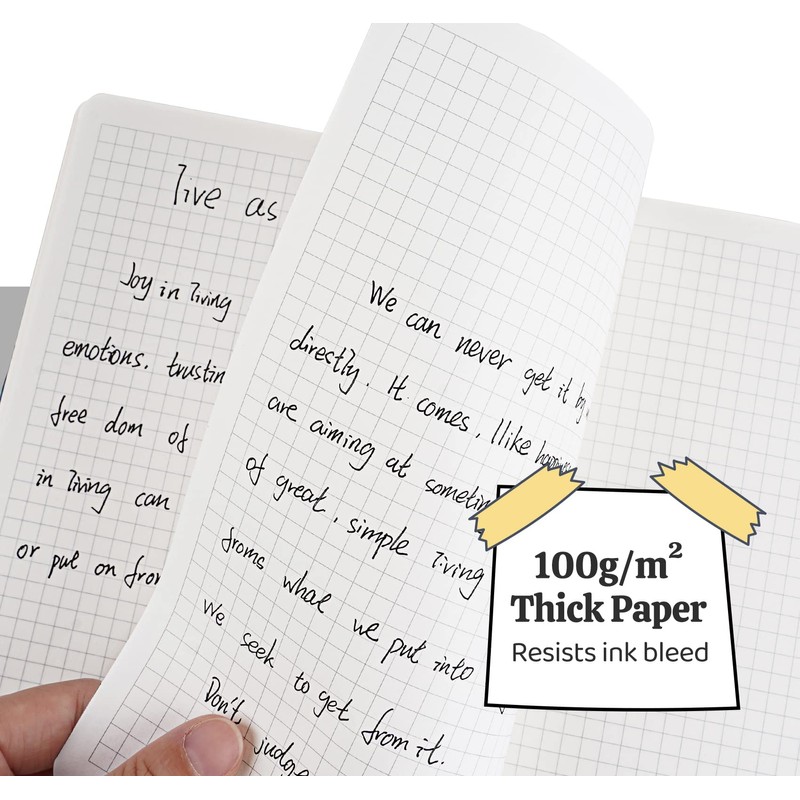 live as
Joy in living
emotions. trustin
free dom of
in living can
or put on fron
We can never get it by
directly. It comes, llike happines
are aiming at sometin
of great, simple living
froms what we put into
We seek to get from it.
Don't judge
100g/m²
Thick Paper
Resists ink bleed